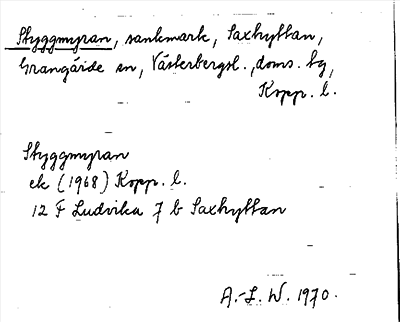 Styggmyran, sankmark, Saxhyttan,
Grangärde sn, Västerbergsl., doms. hg,
Kopp. l.
Styggmyran
ek (1968) Kopp. l.
12 F Ludvika 7 b Saxhyttan
A.-L. W. 1970.